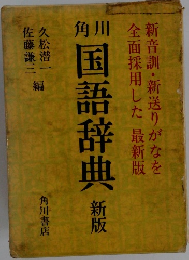 新音訓・新送りがなを
全面採用した 最新版
角川
国語辞典 新版
久松潜一
佐藤謙三 編
角川書店